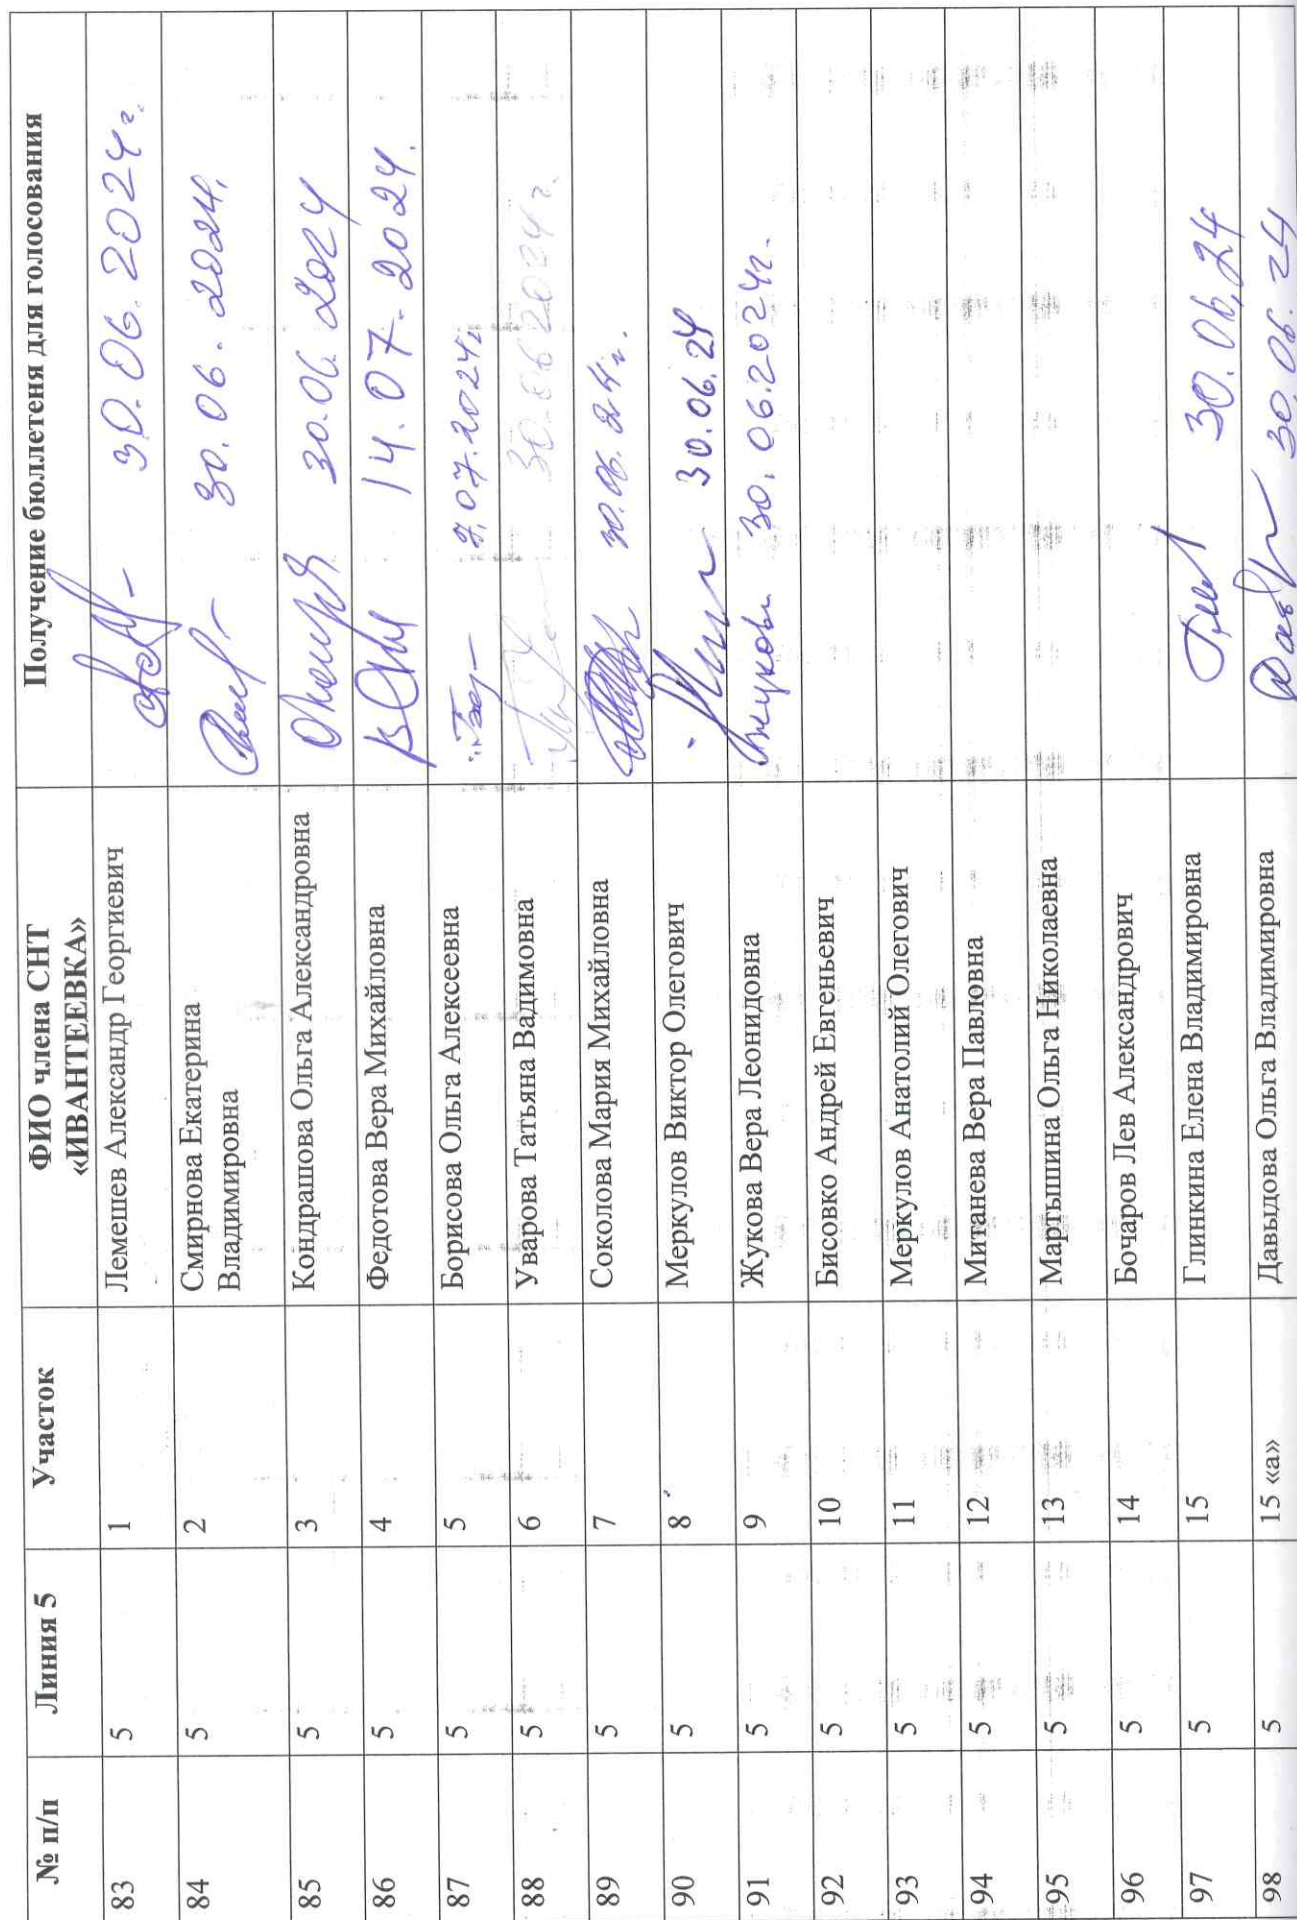 № п/п Линия 5 Участок ФИО члена СНТ Получение бюллетеня для голосования
«ИВАНТЕЕВКА»
83 5 1 Лемешев Александр Георгиевич 30.06.2024г.
84 5 2 Смирнова Екатерина 30.06.2024.
Владимировна
85 5 3 Кондрашова Ольга Александровна 30.06.2024
86 5 4 Федотова Вера Михайловна 14.07.2024.
87 5 5 Борисова Ольга Алексеевна 7.07.2024г
88 5 6 Уварова Татьяна Вадимовна 30.06 2024 г.
89 5 7 Соколова Мария Михайловна 30.06.24г.
90 5 8 Меркулов Виктор Олегович 30.06.24
91 5 9 Жукова Вера Леонидовна 30.06.2024г.
92 5 10 Бисовко Андрей Евгеньевич
93 5 11 Меркулов Анатолий Олегович
94 5 12 Митанева Вера Павловна
95 5 13 Мартышина Ольга Николаевна
96 5 14 Бочаров Лев Александрович
97 5 15 Глинкина Елена Владимировна 30.06.24
98 5 15 «а» Давыдова Ольга Владимировна 30.06.24